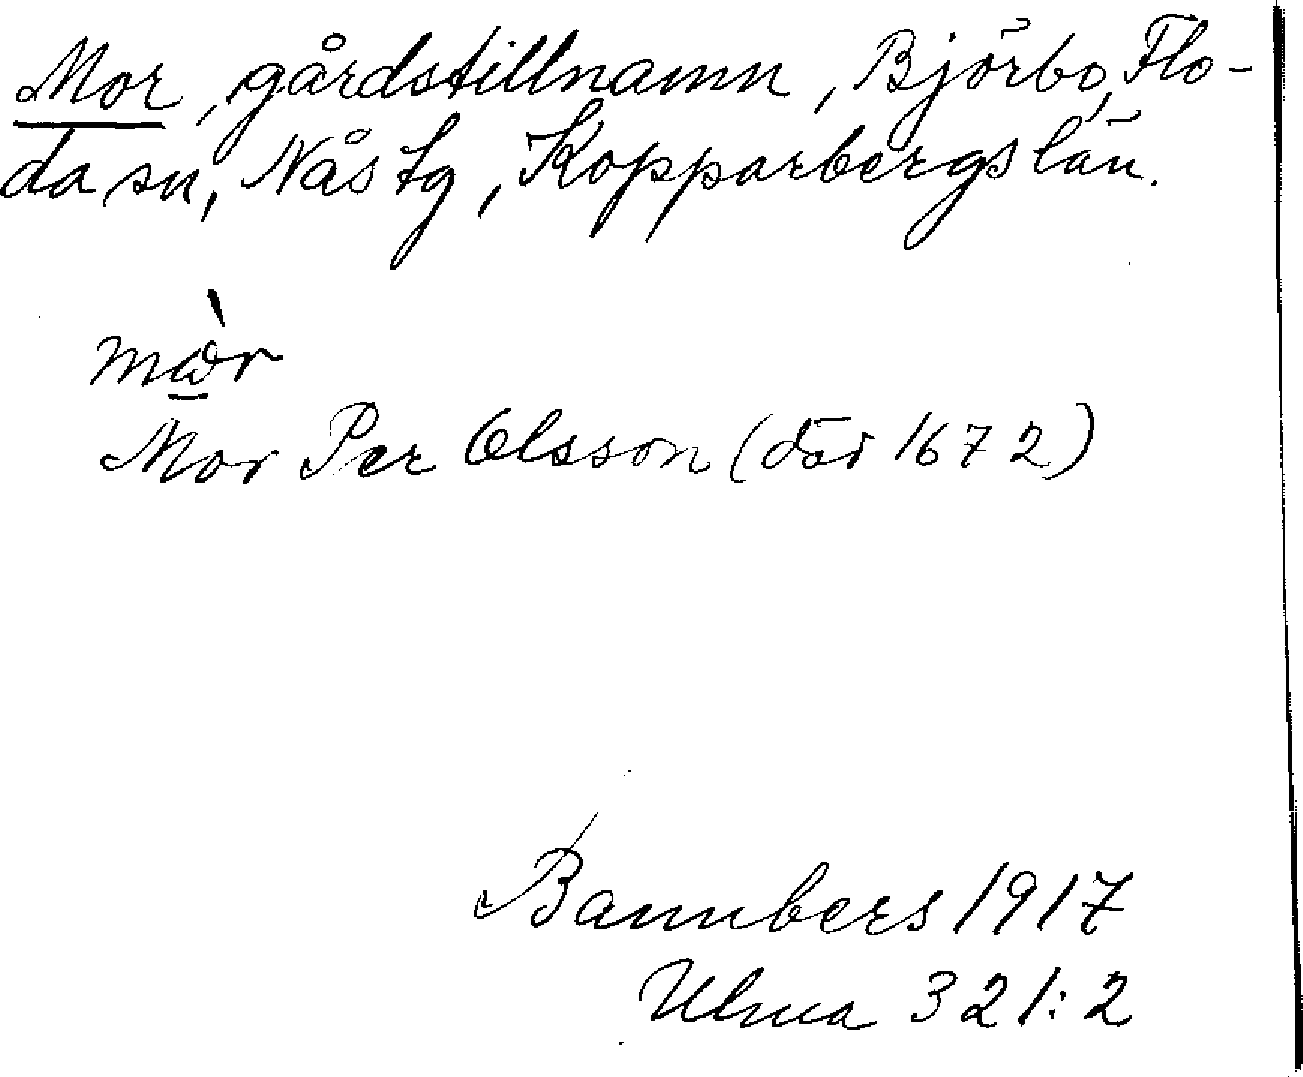 Mor, gårdstillnamn, Björbo, Flo-
da sn, Nås tg, Kopparbergs län.
mὼ̲r
Mor Per Olsson (där 1672)
Bannbers 1917
Ulma 321:2